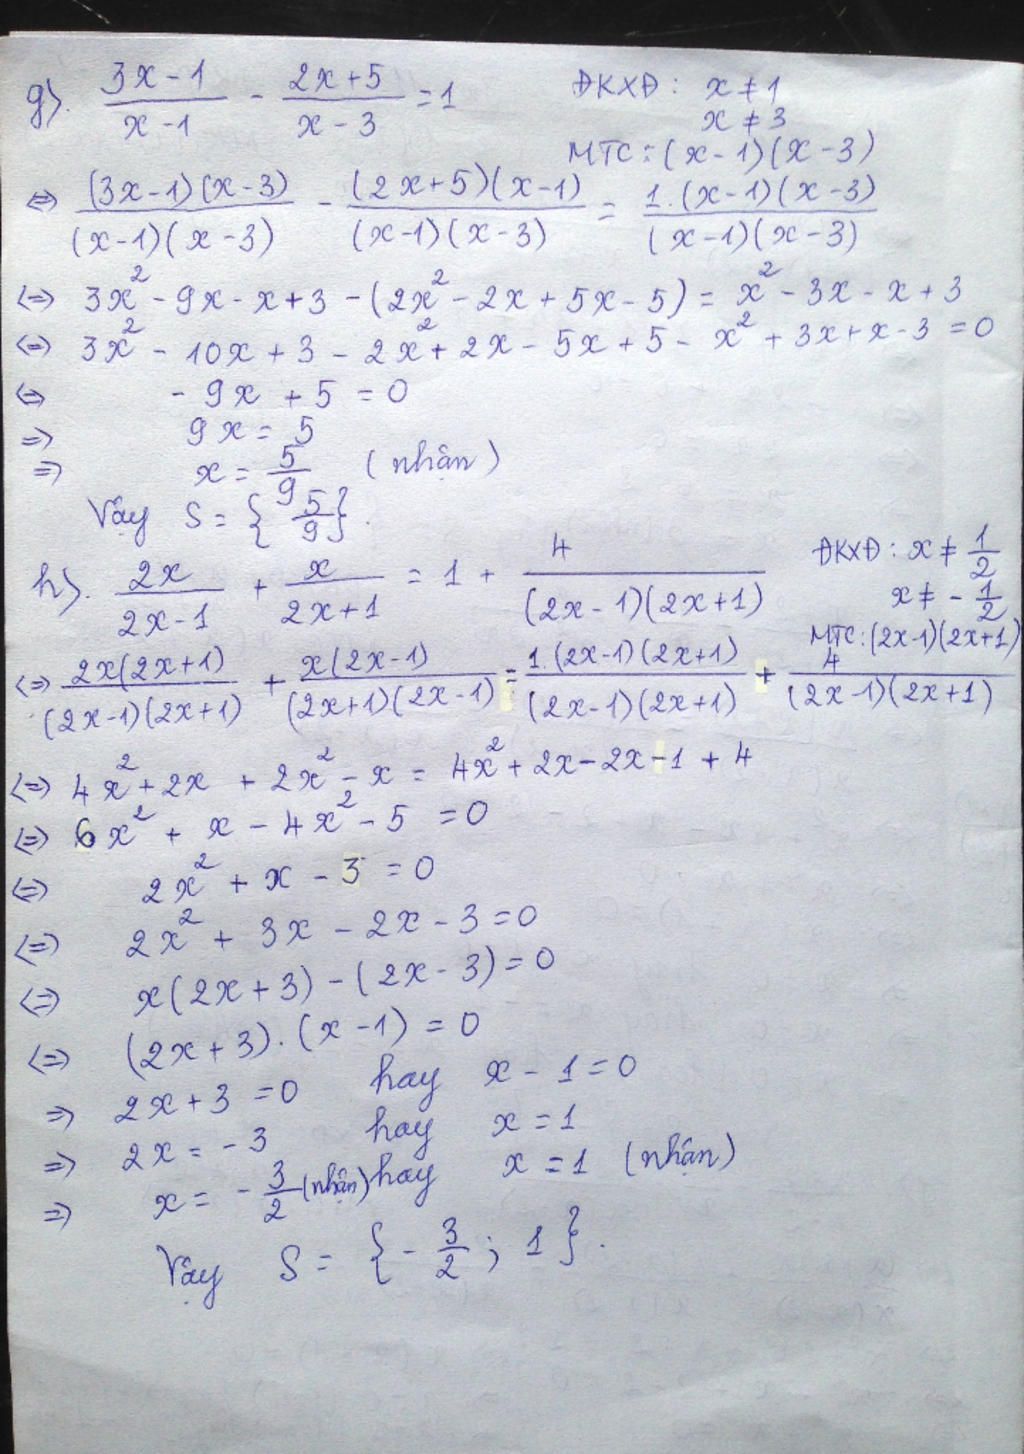 g). (3x-1)/(x-1) - (2x+5)/(x-3) = 1    ĐKXĐ: x ≠ 1
x ≠ 3
MTC: (x-1)(x-3)
⇔ (3x-1)(x-3)/(x-1)(x-3) - (2x+5)(x-1)/(x-1)(x-3) = 1.(x-1)(x-3)/(x-1)(x-3)
⇔ 3x² - 9x - x + 3 - (2x² - 2x + 5x - 5) = x² - 3x - x + 3
⇔ 3x² - 10x + 3 - 2x² + 2x - 5x + 5 - x² + 3x + x - 3 = 0
⇔ - 9x + 5 = 0
⇒ 9x = 5
⇒ x = 5/9 (nhận)
Vậy S = {5/9}.
h). 2x/(2x-1) + x/(2x+1) = 1 + 4/(2x-1)(2x+1)    ĐKXĐ: x ≠ 1/2
x ≠ -1/2
MTC: (2x-1)(2x+1)
⇔ 2x(2x+1)/(2x-1)(2x+1) + x(2x-1)/(2x+1)(2x-1) = 1.(2x-1)(2x+1)/(2x-1)(2x+1) + 4/(2x-1)(2x+1)
⇔ 4x² + 2x + 2x² - x = 4x² + 2x - 2x - 1 + 4
⇔ 6x² + x - 4x² - 5 = 0
⇔ 2x² + x - 3 = 0
⇔ 2x² + 3x - 2x - 3 = 0
⇔ x(2x+3) - (2x-3) = 0
⇔ (2x+3).(x-1) = 0
⇒ 2x+3 = 0 hay x - 1 = 0
⇒ 2x = -3 hay x = 1
⇒ x = -3/2 (nhận) hay x = 1 (nhận)
Vậy S = {-3/2; 1}.